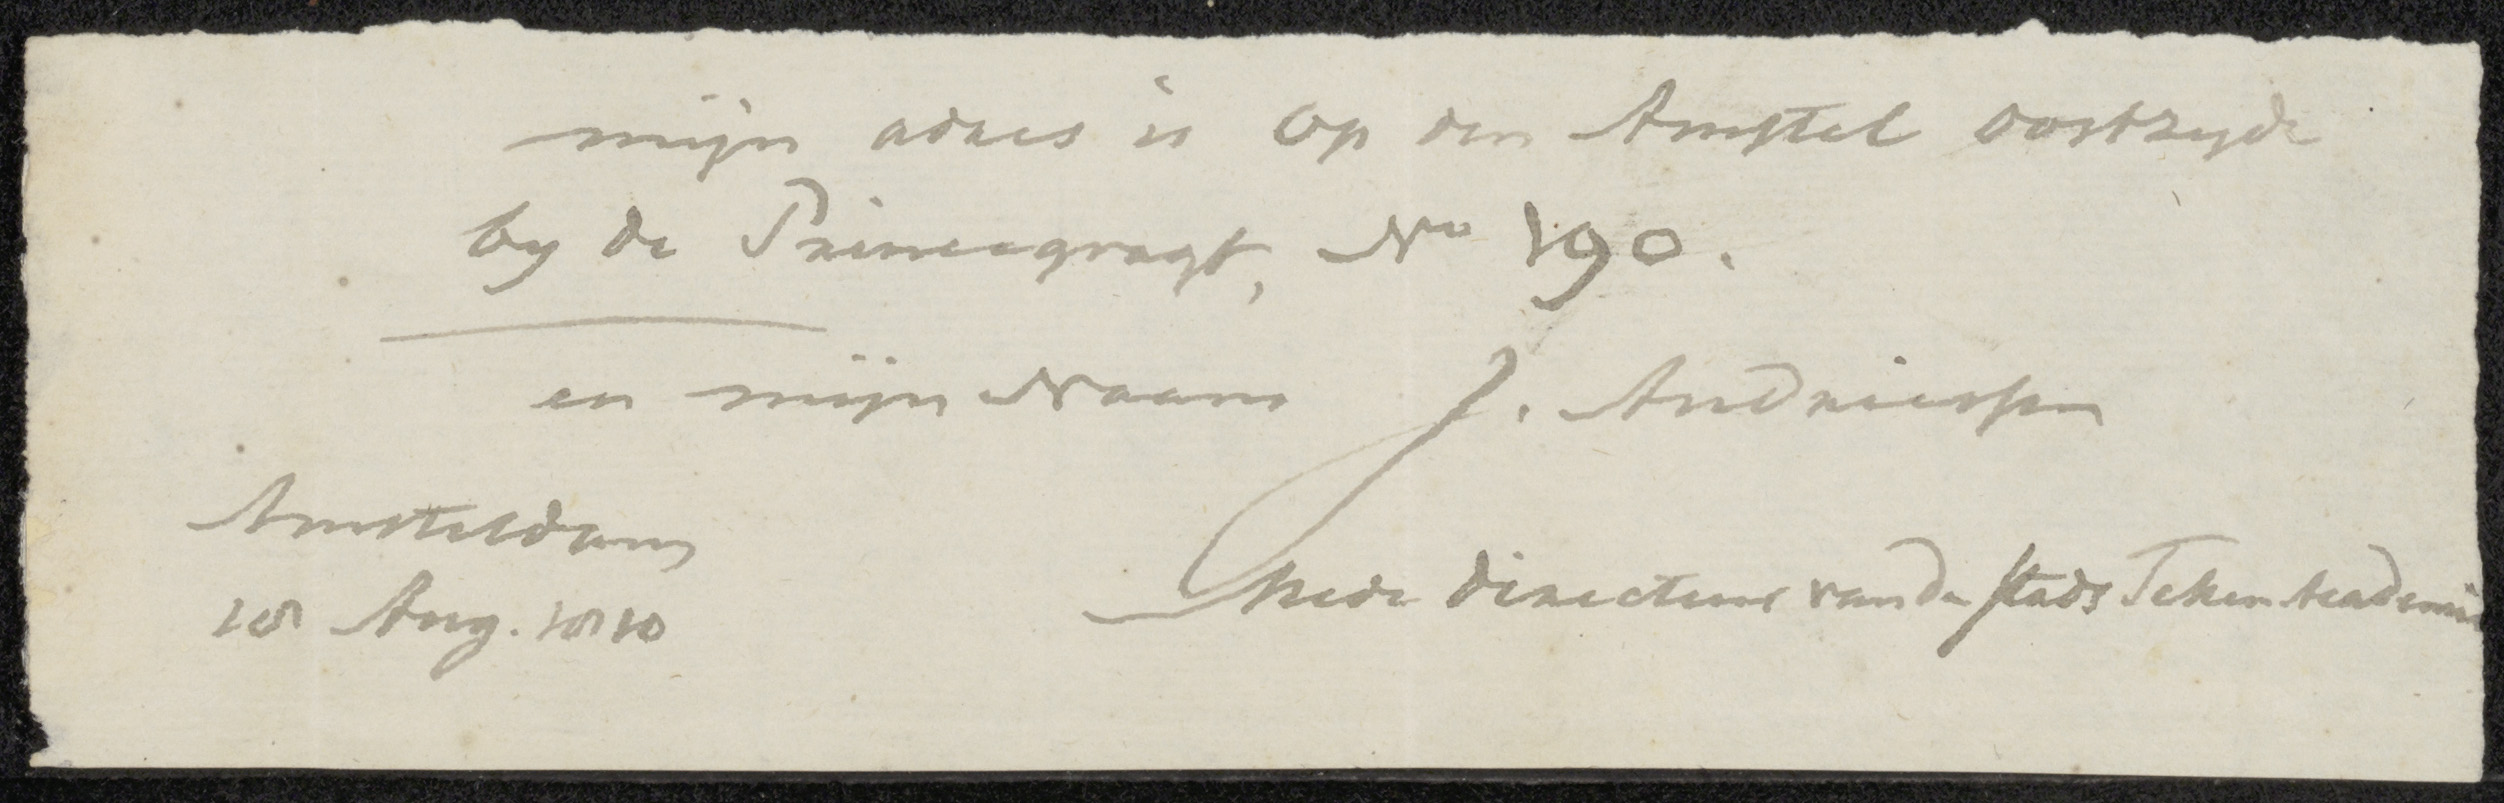 mijn adres is op den Amstel oostzyde
by de Princegragt, No 190.
en mijn Naam J. Andriessen
Amsteldam
18 Aug. 1810
Mede directeur van de stads Teken Academie